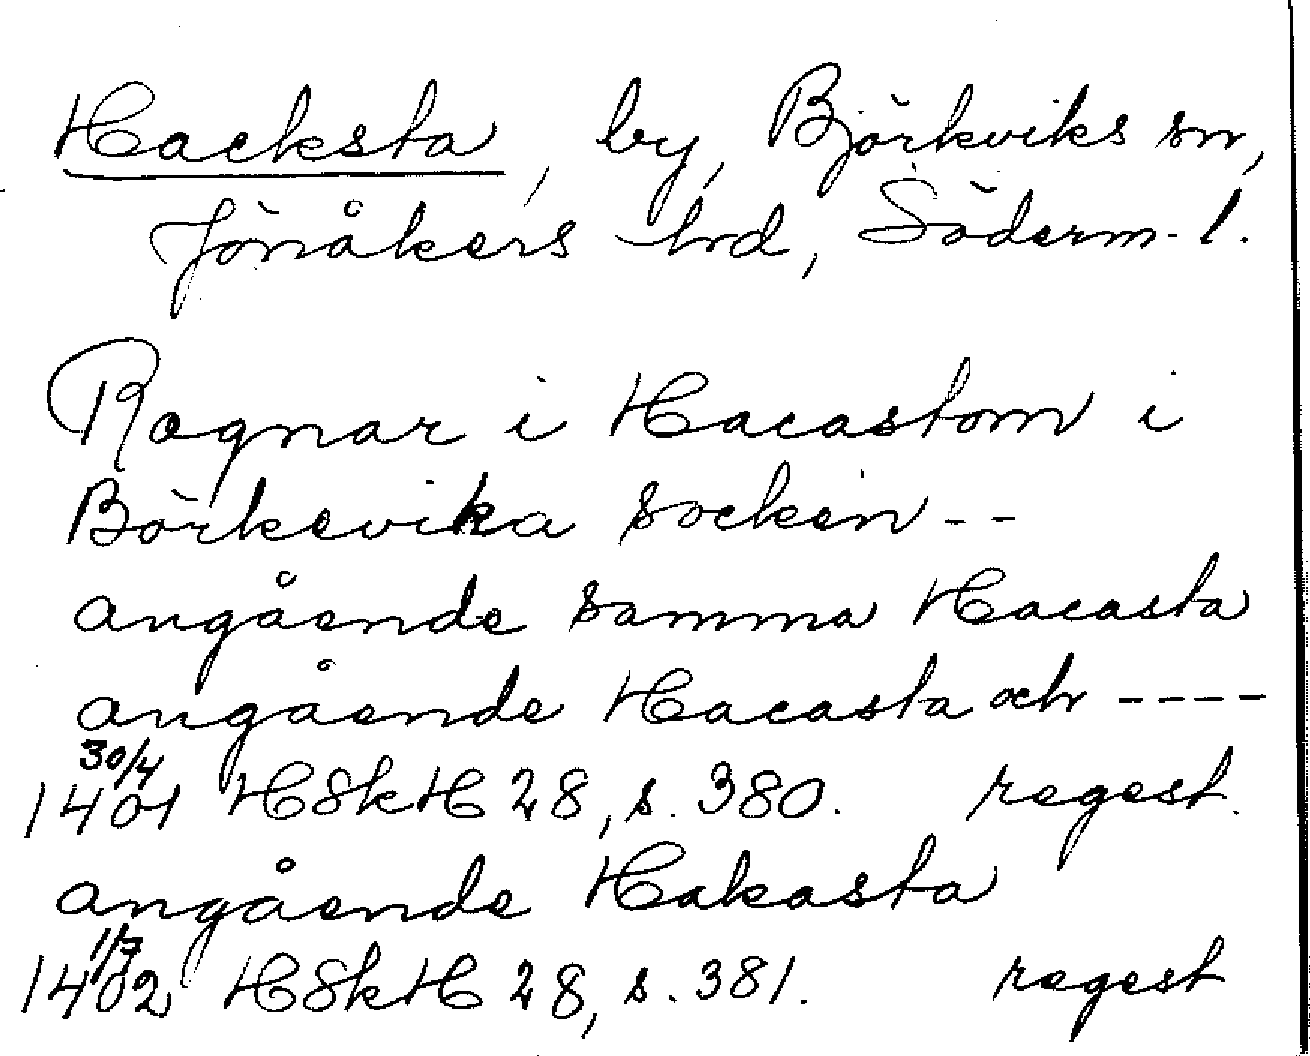 Hacksta, by, Björkviks sn,
Jönåkers hrd, Söderm. l.
Ragnar i Hacastom i
Börkevika socken --
angående samma Hacasta
angående Hacasta och ----
30/4
1401 HSkH 28, s. 380. regest.
angående Hakasta
1/7
1402 HSkH 28, s. 381. regest